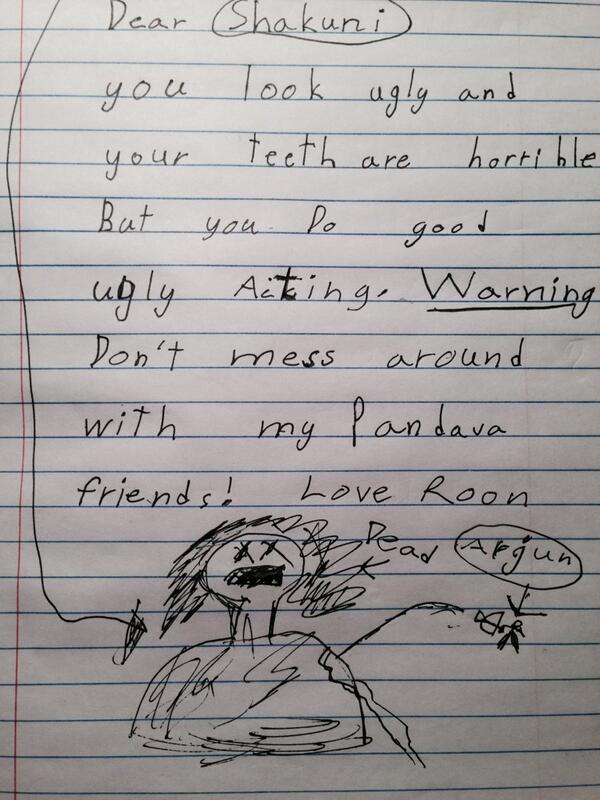 Dear Shakuni
you look ugly and
your teeth are horrible
But you Do good
ugly Acting. Warning
Don't mess around
with my Pandava
friends! Love Roon
Dead Arjun